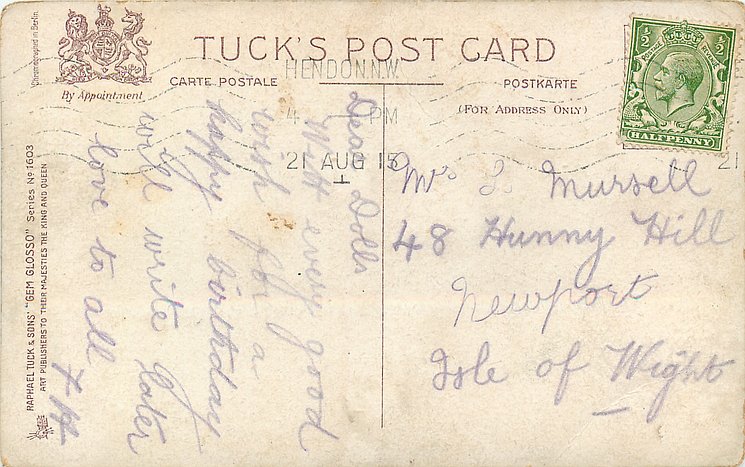 TUCK'S POST CARD
CARTE POSTALE
POSTKARTE
(FOR ADDRESS ONLY)
By Appointment
Chromographed in Berlin.
RAPHAEL TUCK & SONS' "GEM GLOSSO" Series No 1603
ART PUBLISHERS TO THEIR MAJESTIES THE KING AND QUEEN
½ ½
POSTAGE REVENUE
HALFPENNY
HENDON.N.W.
4 PM
21 AUG 15
21
Dear Dolls
With every good
wish for a
happy birthday
will write later
love to all
Mrs S. Mursell
48 Hunny Hill
Newport
Isle of Wight